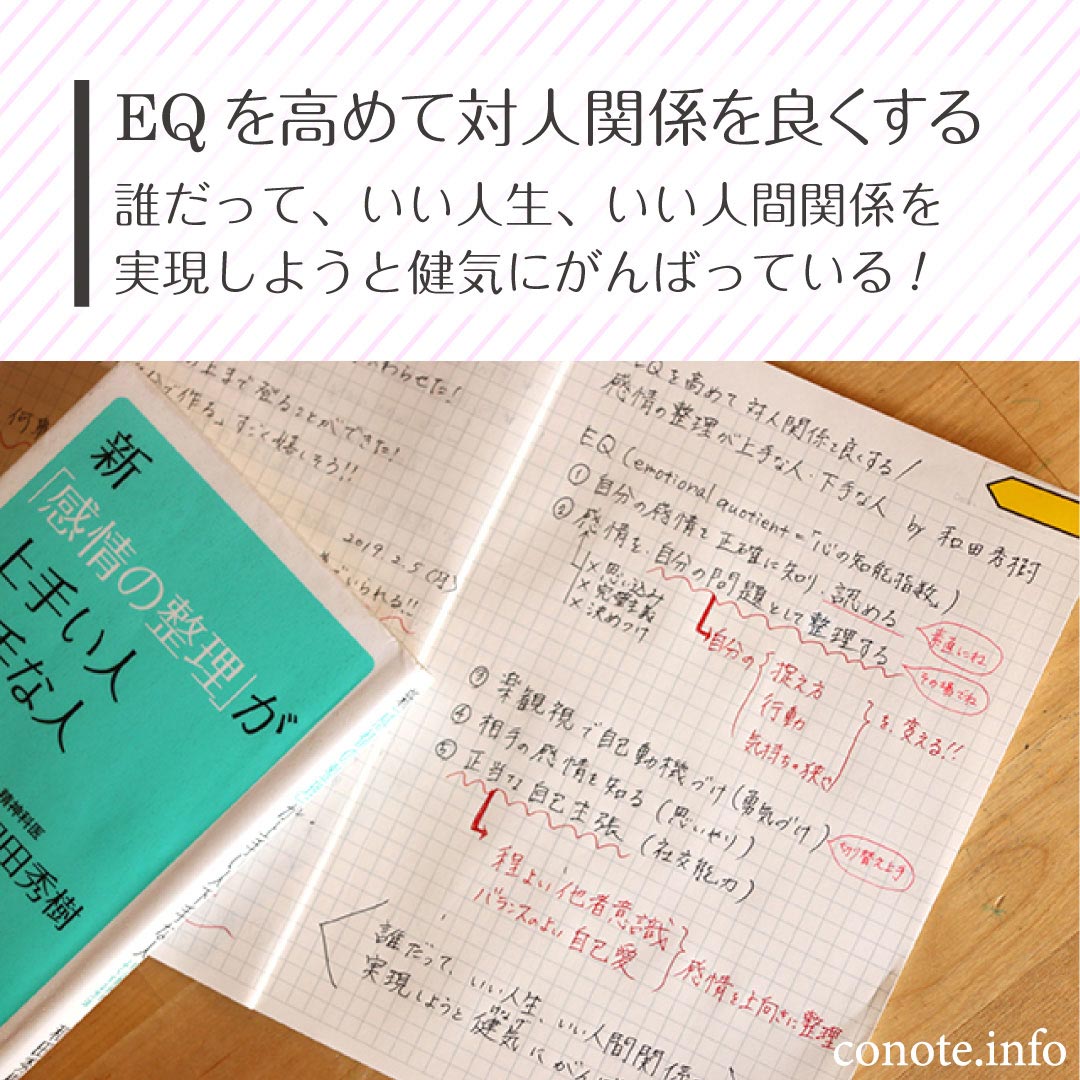 EQを高めて対人関係を良くする
誰だって、いい人生、いい人間関係を
実現しようと健気にがんばっている！
わらせた!
上まで登ることができた!
で作る。すごく嬉しそう!!
何
2019.2.5(火)
でいられる!!
新
「感情の整理」が
上手い人
下手な人
精神科医
和田秀樹
EQを高めて対人関係を良くする/
感情の整理が上手な人・下手な人 by 和田秀樹
EQ (emotional quotient=「心の知能指数」)
① 自分の感情を正確に知り、認める
素直にね
② 感情を、自分の問題として整理する
その場でね
× 思い込み
× 完璧主義
× 決めつけ
自分の
捉え方
行動
気持ちの狭さ
を、変える!!
③ 楽観視で自己動機づけ(勇気づけ)
切り替え上手
④ 相手の感情を知る(思いやり)
⑤ 正当な自己主張(社交能力)
程よい他者意識
バランスのよい自己愛
感情を上向きに整理
誰だって、いい人生、いい人間関係
実現しようと健気にがん
conote.info